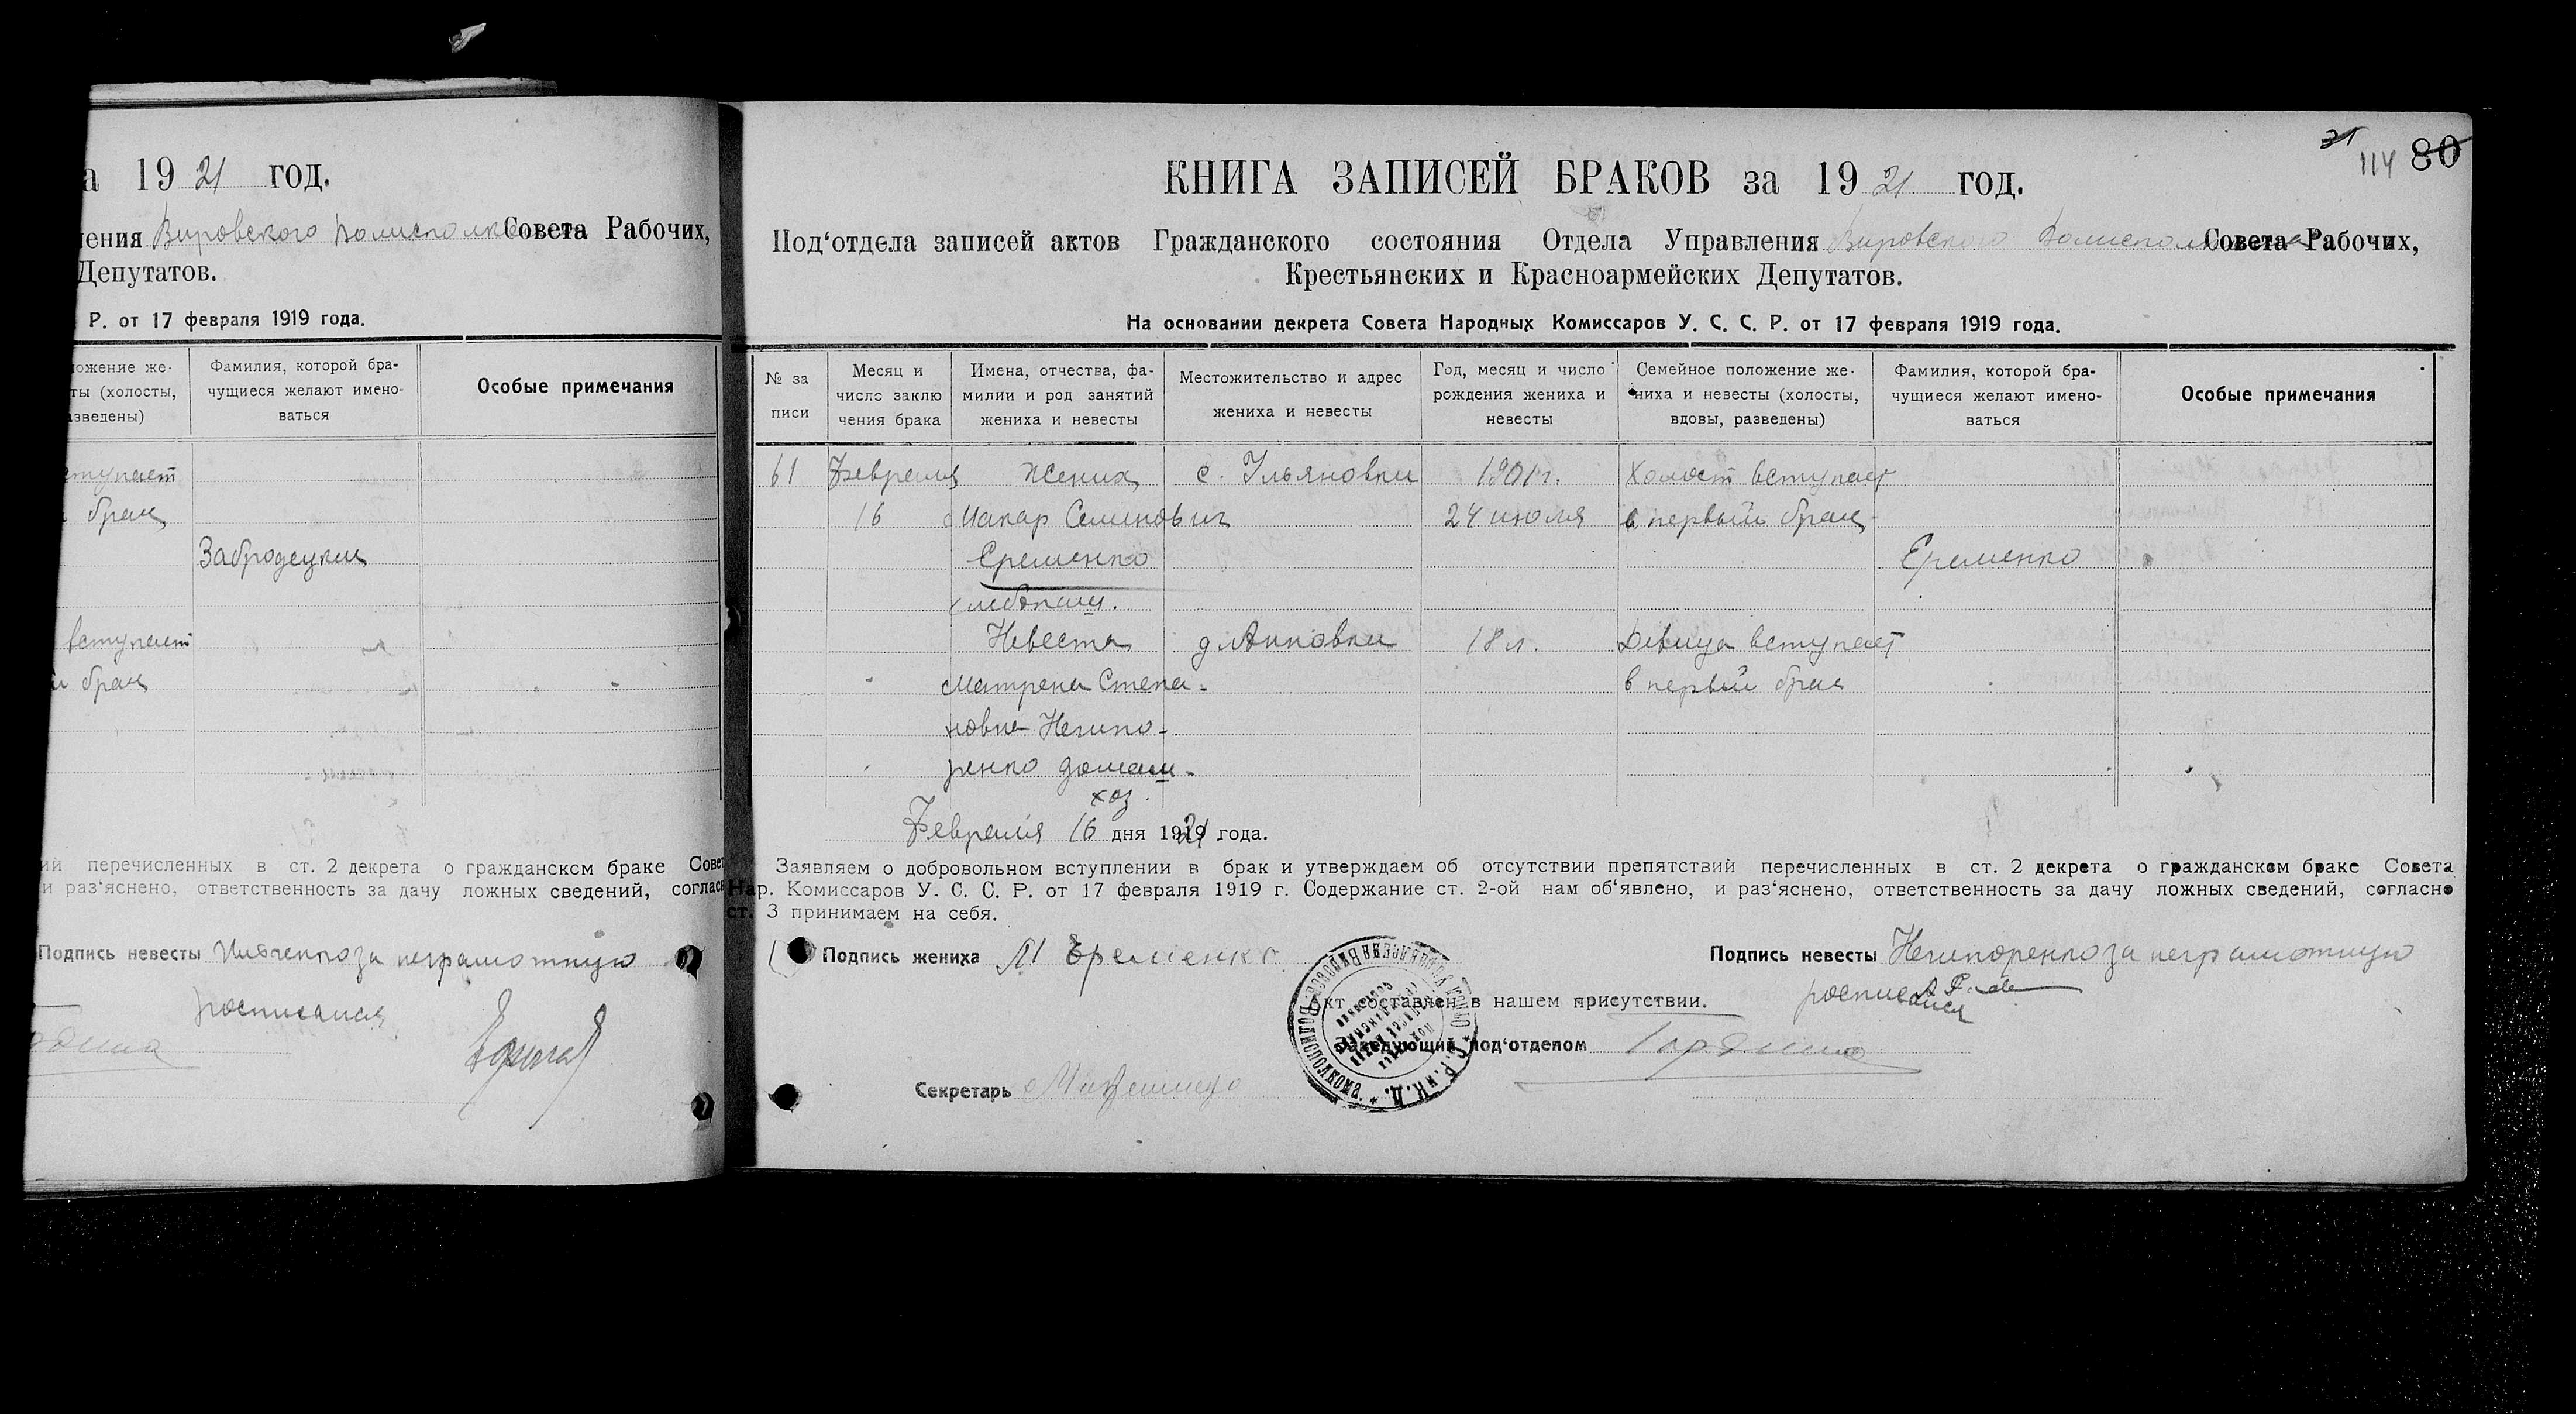 а 1921 год.
ления Вировского Волисполкома Совета Рабочих,
Депутатов.
Р. от 17 февраля 1919 года.
ложение же-
ты (холосты,
азведены)
Фамилия, которой бра-
чущиеся желают имено-
ваться
Особые примечания
ступает
брак
Забродецкий
вступает
й брак
ий перечисленных в ст. 2 декрета о гражданском браке Совет
и раз‘яснено, ответственность за дачу ложных сведений, соглас
Подпись невесты за неграмотную
росписался
31
114 80
КНИГА ЗАПИСЕЙ БРАКОВ за 1921 год.
Под‘отдела записей актов Гражданского состояния Отдела Управления Вировского Волисполкома Совета Рабочих,
Крестьянских и Красноармейских Депутатов.
На основании декрета Совета Народных Комиссаров У. С. С. Р. от 17 февраля 1919 года.
№ за
писи
Месяц и
число заклю
чения брака
Имена, отчества, фа-
милии и род занятий
жениха и невесты
Местожительство и адрес
жениха и невесты
Год, месяц и число
рождения жениха и
невесты
Семейное положение же-
ниха и невесты (холосты,
вдовы, разведены)
Фамилия, которой бра-
чущиеся желают имено-
ваться
Особые примечания
61 Февраля Жених с. Ульяновки 1901 г. Холост вступает
16 Макар Семенович 24 июля в первый брак
Еременко Еременко
хлебопаш.
Невеста д Анновки 18 л. Девица вступает
Матрена Степа- в первый брак
новна Негипо-
ренко домаш-
хоз.
Февраля 16 дня 1921 года.
Заявляем о добровольном вступлении в брак и утверждаем об отсутствии препятствий перечисленных в ст. 2 декрета о гражданском браке Совета
Нар. Комиссаров У. С. С. Р. от 17 февраля 1919 г. Содержание ст. 2-ой нам об‘явлено, и раз‘яснено, ответственность за дачу ложных сведений, согласно
ст. 3 принимаем на себя.
Подпись жениха М Еременко
Подпись невесты Негипоренко за неграмотную
росписался
Акт составлен в нашем присутствии.
Заведующий под‘отделом
Секретарь